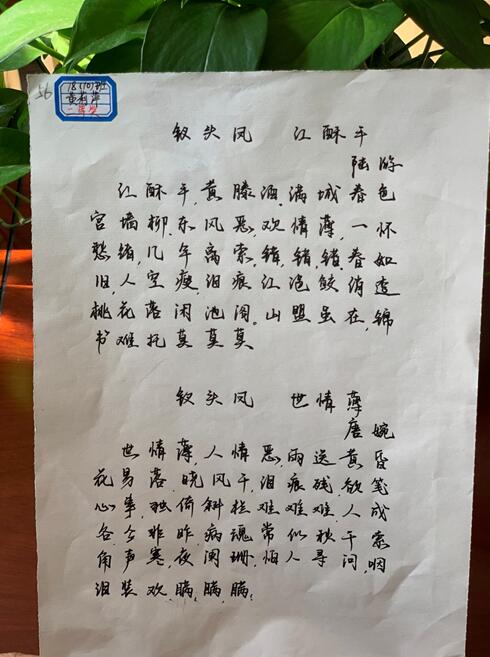 56
钗头凤 江酥手
陆游
江酥手,黄滕酒,满城春色
宫墙柳,东风恶,欢情薄,一怀
愁绪,几年离索,错,错,错,春如
旧人空瘦,泪痕江浥鲛绡透
桃花落闲池阁。山盟虽在,锦
书难托莫莫莫
钗头凤 世情薄
唐婉
世情薄,人情恶,雨送黄昏
花易落,晓风干,泪痕残,欲笺
心事,独倚斜栏,难难难,人成
各今非昨,病魂常似秋千索
角声寒,夜阑珊,怕人寻问,咽
泪装欢,瞒,瞒,瞒。